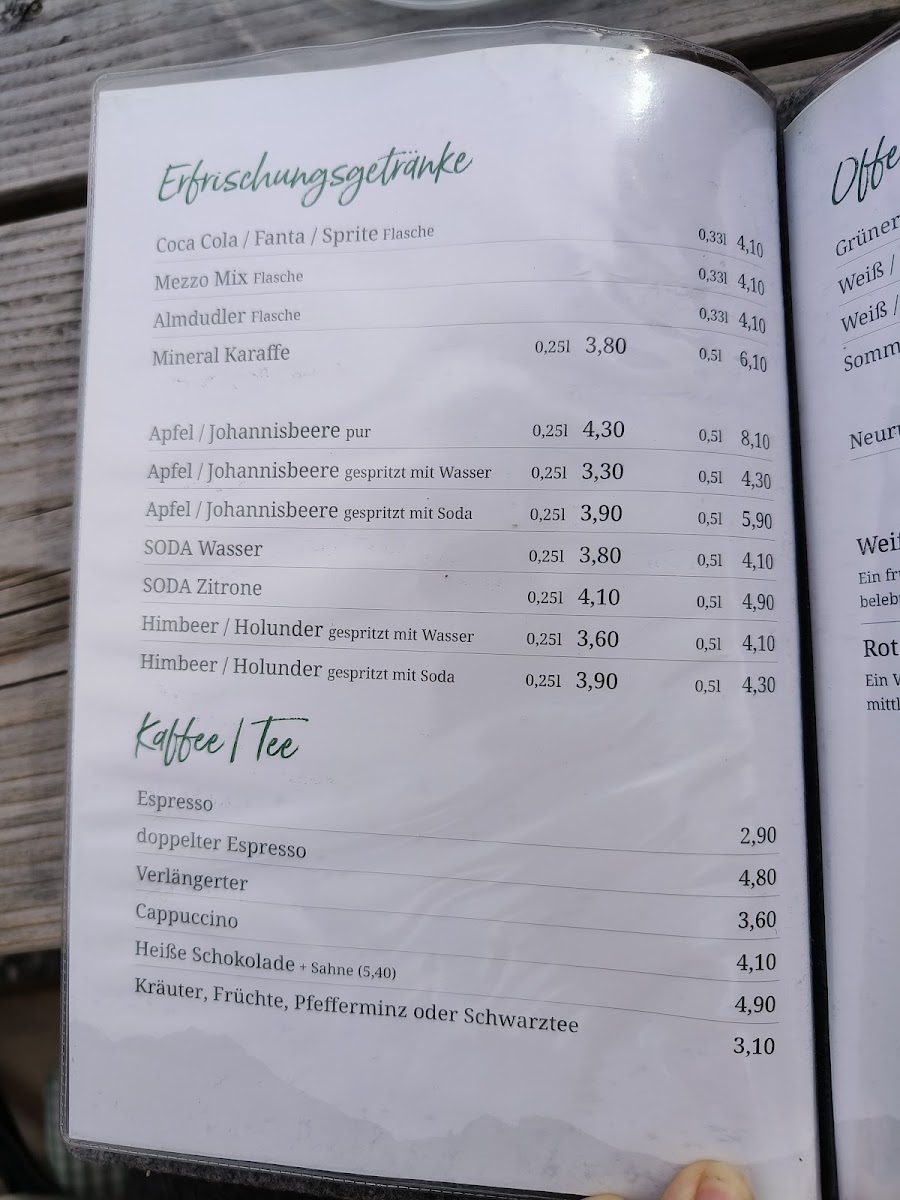 Erfrischungsgetränke
Coca Cola / Fanta / Sprite Flasche 0,33l 4,10
Mezzo Mix Flasche 0,33l 4,10
Almdudler Flasche 0,33l 4,10
Mineral Karaffe 0,25l 3,80 0,5l 6,10
Apfel / Johannisbeere pur 0,25l 4,30 0,5l 8,10
Apfel / Johannisbeere gespritzt mit Wasser 0,25l 3,30 0,5l 4,30
Apfel / Johannisbeere gespritzt mit Soda 0,25l 3,90 0,5l 5,90
SODA Wasser 0,25l 3,80 0,5l 4,10
SODA Zitrone 0,25l 4,10 0,5l 4,90
Himbeer / Holunder gespritzt mit Wasser 0,25l 3,60 0,5l 4,10
Himbeer / Holunder gespritzt mit Soda 0,25l 3,90 0,5l 4,30
Kaffee / Tee
Espresso 2,90
doppelter Espresso 4,80
Verlängerter 3,60
Cappuccino 4,10
Heiße Schokolade + Sahne (5,40) 4,90
Kräuter, Früchte, Pfefferminz oder Schwarztee 3,10
Offe
Grüner
Weiß /
Weiß /
Somm
Ein
Rot
Ein
mittl